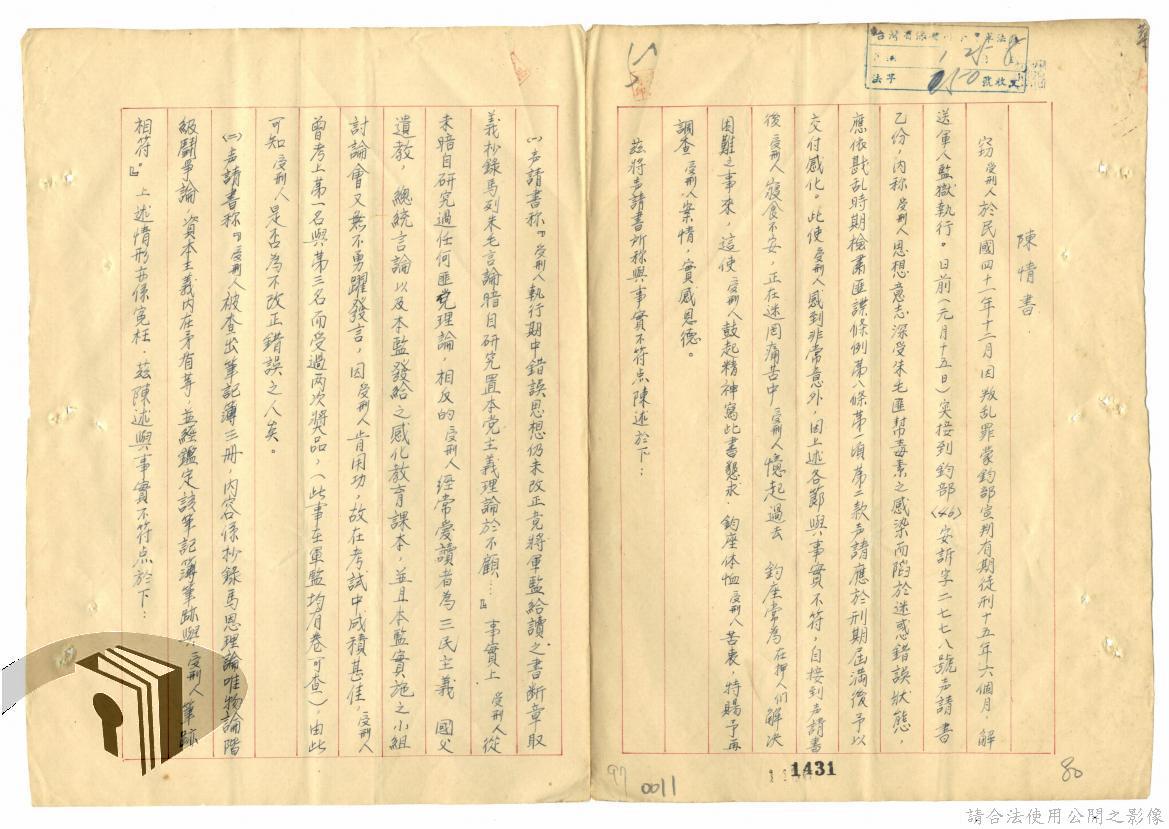 陳情書
竊受刑人於民國四十一年十二月因叛乱罪蒙鈞部宣判有期徒刑十五年六個月，解
送軍人監獄執行。日前（元月十五日）突接到鈞部（46）安訴字二七七八號声請書
乙份，内称受刑人思想意志深受朱毛匪幫毒素之感染而陷於迷惑錯誤狀態，
應依戡乱時期檢肅匪諜條例第八條第一項第二款声請應於刑期屆滿後予以
交付感化。此使受刑人感到非常意外，因上述各節與事實不符，自接到声請書
後受刑人寢食不安，正在迷罔痛苦中受刑人憶起過去 鈞座常為在押人们解決
困難之事來，這使受刑人鼓起精神寫此書懇求 鈞座体恤受刑人苦衷，特賜予再
調查受刑人案情，實感恩德。
茲將声請書所称與事實不符点陳述於下：
㈠声請書称『受刑人執行期中錯誤思想仍未改正竟將軍監給讀之書断章取
義抄錄馬列朱毛言論暗自研究置本党主義理論於不顧…』事實上 受刑人從
未暗自研究過任何匪党理論，相反的受刑人經常愛讀者為三民主義 國父
遺教， 總統言論以及本監發給之感化教育課本，並且本監實施之小組
討論會又無不勇躍發言，因受刑人肯用功，故在考試中成積甚佳，受刑人
曾考上第一名與第三名而受過两次獎品，（此事在軍監均有卷可查），由此
可知受刑人是否為不改正錯誤之人矣。
㈡声請書称『受刑人被查出筆記簿三册，内容係抄錄馬恩理論唯物論階
級鬪爭論，資本主義内在矛盾等，並經鑑定該筆記簿筆跡與受刑人筆跡
相符』。上述情形亦係冤枉，茲陳述與事實不符点於下：
法字
號
收文
1431
0011
97
80
請合法使用公開之影像